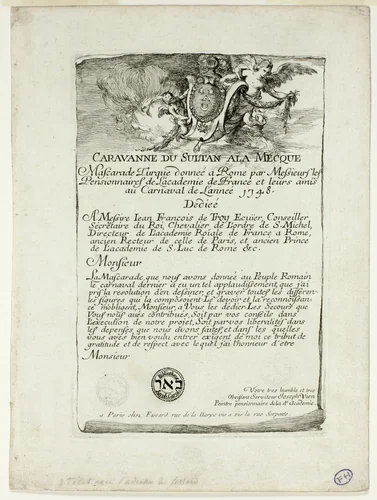 CARAVANNE DU SULTAN A LA MECQUE
Mascarade Turque donneé a Rome par Messieurs les
Pensionnaires de L'academie de France et leurs amis
au Carnaval de L'anneé 1748.
Dédieé
A Messire Jean François de Troy Ecuïer, Conseiller
Sécrétaire du Roi, Chevalier de L'ordre de S. Michel,
Directeur de L'academie Roïale de France, a Rome,
ancien Recteur de celle de Paris, et ancien Prince
de L'academie de S. Luc de Rome &c.
Monsieur
La Mascarade que nous avons donneé au Peuple Romain
le carnaval dernier a eu un tel applaudissement, que j'ai
pris la resolution d'en desiner, et graver toutes les differen-
tes figures qui la composoient. Le devoir et la reconnoissan-
ce m'obligent, Monsieur, a Vous les dedier. Les Secours que
Vous nous aués contribués, Soit par vos conseils dans
L'execution de notre projet, Soit par vos liberalités dans
les depenses que nous auons faites, et dans les quelles
vous avés bien voulu entrer exigent de moi ce tribut de
gratitude et de respect avec le quel j'ai l'honneur d'etre
Monsieur
Votre tres humble et tres
Obeïssant Serviteur Joseph Vien
Peintre pensionnaire de la de Academie.
a Paris chez Fassard rue de la Harpe vis a vis la rue Serpente
FH